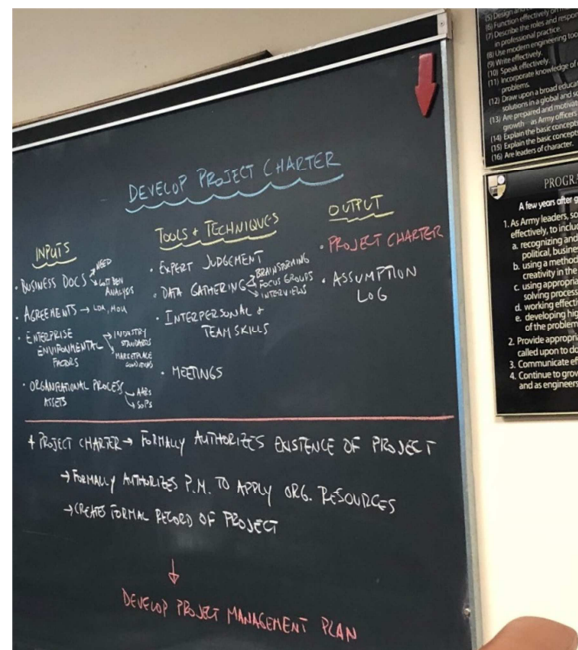 DEVELOP PROJECT CHARTER
INPUTS
• BUSINESS DOCS → NEED
→ COST BEN
ANALYSIS
• AGREEMENTS → LOA, MOU
• ENTERPRISE
ENVIRONMENTAL
FACTORS
→ INDUSTRY
STANDARDS
→ MARKETPLACE
CONDITIONS
• ORGANIZATIONAL PROCESS
ASSETS
→ AARs
→ SOPs
TOOLS + TECHNIQUES
• EXPERT JUDGEMENT
• DATA GATHERING
→ BRAINSTORMING
→ FOCUS GROUPS
→ INTERVIEWS
• INTERPERSONAL +
TEAM SKILLS
• MEETINGS
OUTPUT
• PROJECT CHARTER
• ASSUMPTION
LOG
+ PROJECT CHARTER → FORMALLY AUTHORIZES EXISTENCE OF PROJECT
→ FORMALLY AUTHORIZES P.M. TO APPLY ORG. RESOURCES
→ CREATES FORMAL RECORD OF PROJECT
↓
DEVELOP PROJECT MANAGEMENT PLAN
(5) Design
(6) Function effectively on
(7) Describe the roles and
in professional practice.
(8) Use modern engineering
(9) Write effectively.
(10) Speak effectively.
(11) Incorporate knowledge of
problems.
(12) Draw upon a broad
solutions in a global and
(13) Are prepared and
growth - as Army officers
(14) Explain the basic
(15) Explain the basic
(16) Are leaders of character.
A few years after
1. As Army leaders,
effectively, to
a. recognizing and
political,
b. using a
creativity in the
c. using
solving
d. working
e. developing
of the
2. Provide
called upon to
3. Communicate
4. Continue to
and as